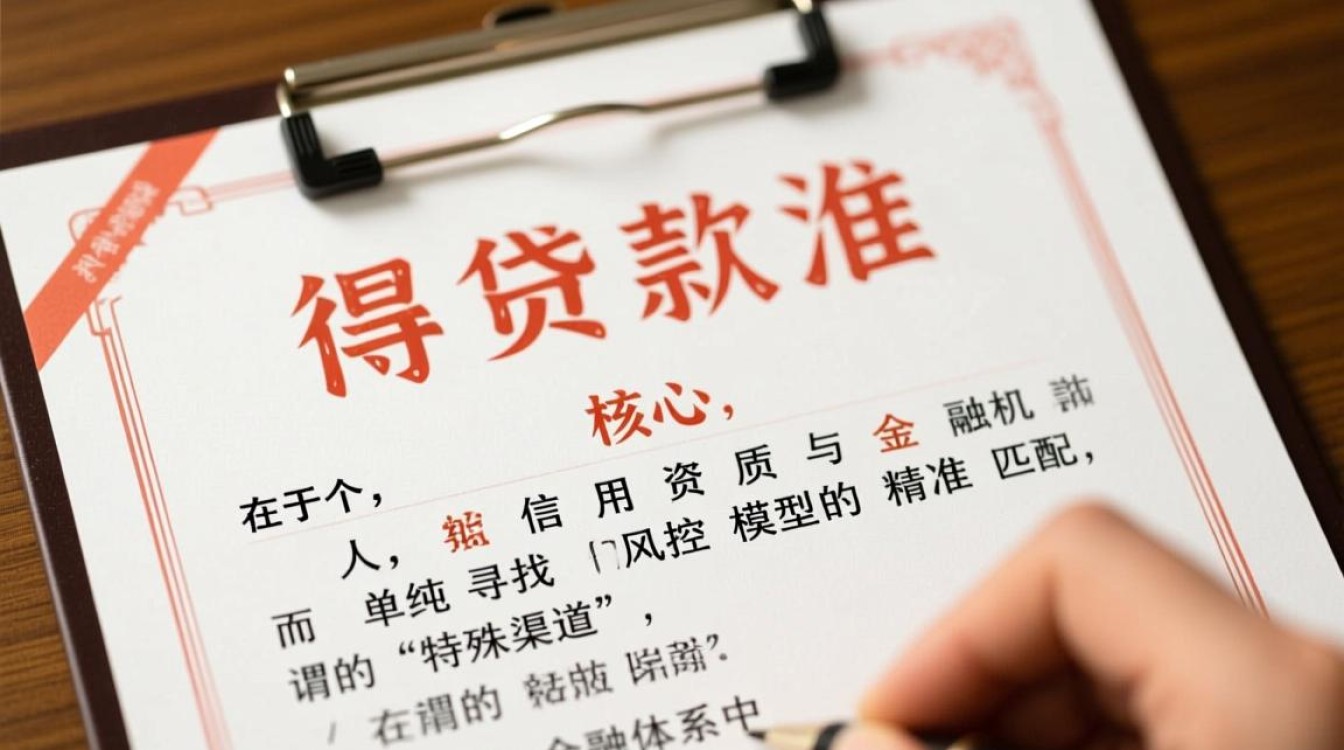 得贷款淮
核心，
在于个，
人， 信 用 资 质 与 金 融机
而 单纯 寻找 风控 模型的 精准 匹配，
谓的“特殊渠道”，
在谓的
金融体系中